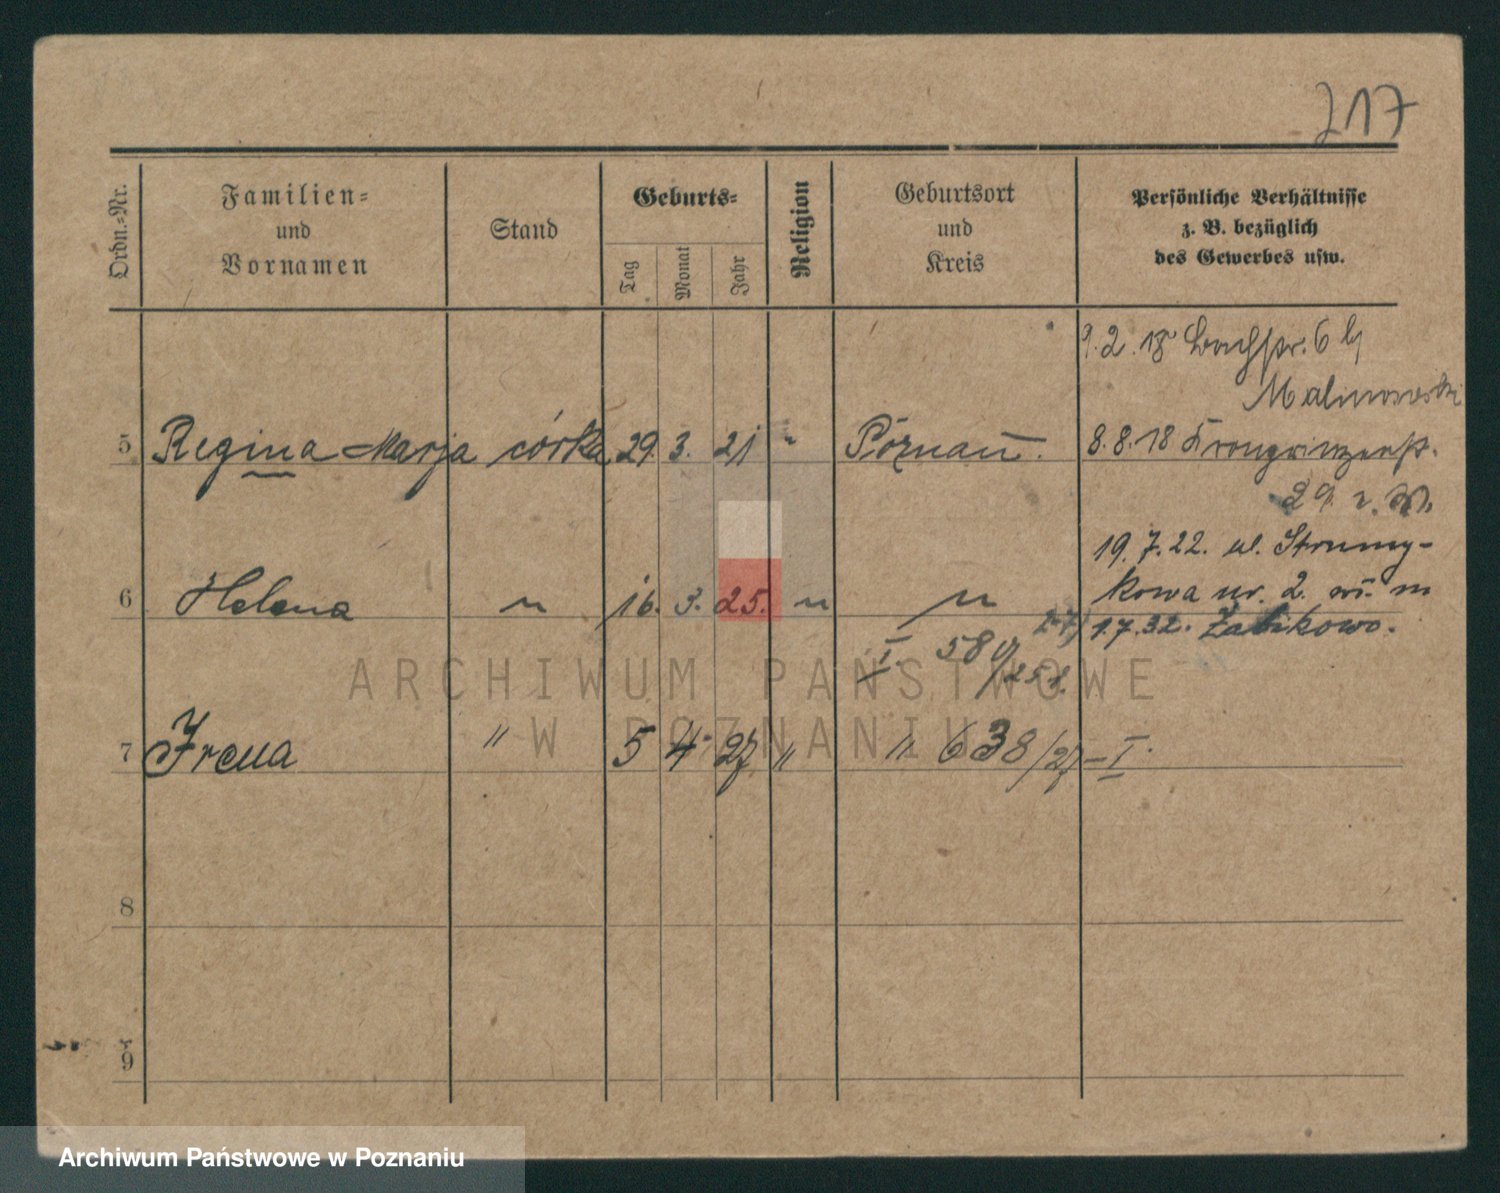 217
Ordn.-Nr.
Familien-
und
Vornamen
Stand
Geburts-
Tag
Monat
Jahr
Religion
Geburtsort
und
Kreis
Persönliche Verhältnisse
z. B. bezüglich
des Gewerbes usw.
9.2.18 Bachstr. 6 b/
Malinowski
5 Regina Marja córka 29. 3. 21 " Poznań. 8.8.18 Kronprinzenst.
29
19.7.22. ul. Strumy-
6 Helena " 16. 3. 25. " " kowa nr. 2.
1.7.32. Żabikowo.
I. 580/25
7 Irena " 5 4. 27 " " 638/27 - I.
8
9
ARCHIWUM PAŃSTWOWE
W POZNANIU
Archiwum Państwowe w Poznaniu